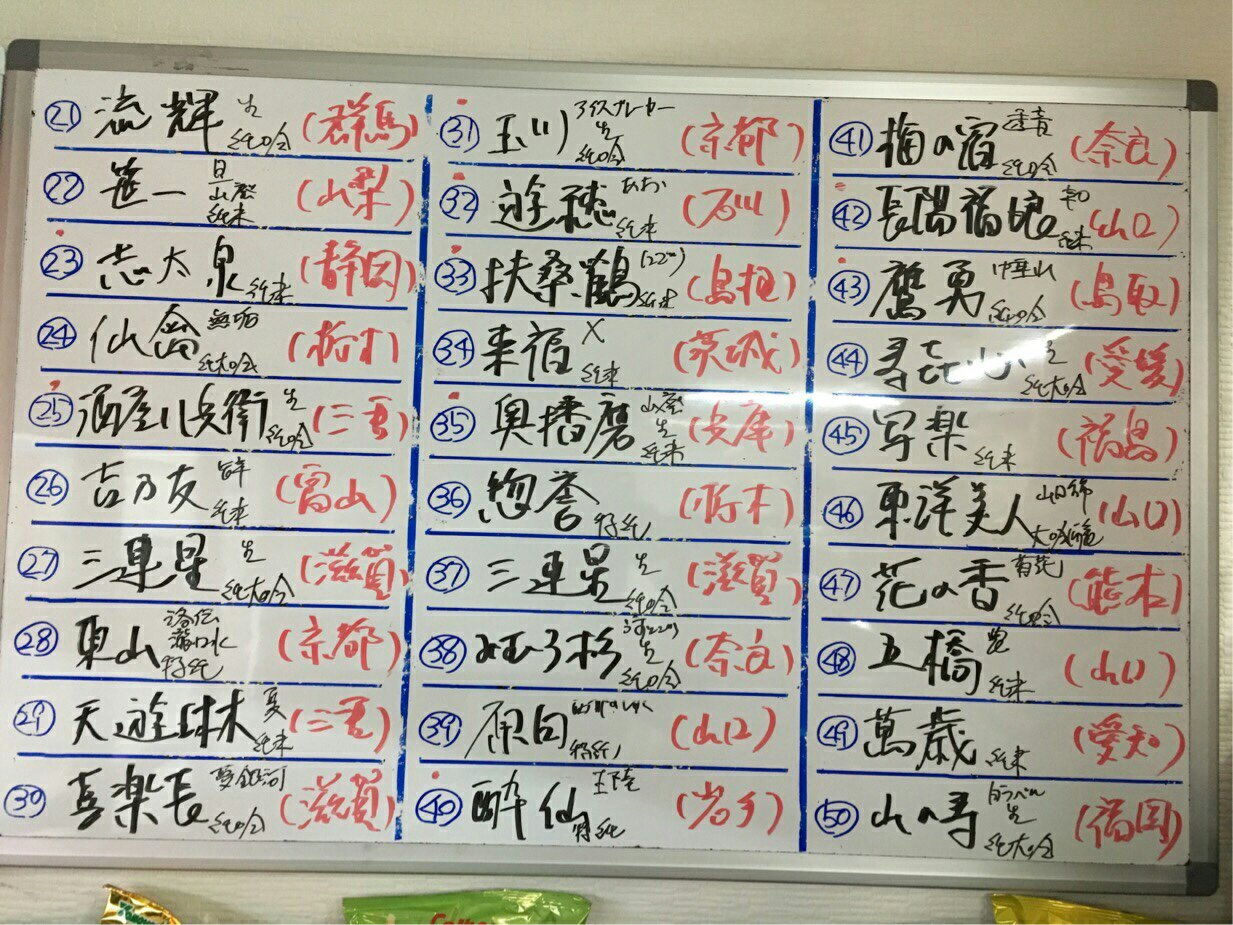 ㉑ 流輝 生 純吟 (群馬)
㉒ 笹一 旦 山廃 純米 (山梨)
㉓ 志太泉 純米 (静岡)
㉔ 仙禽 無垢 純大吟 (栃木)
㉕ 酒屋八兵衛 生 純吟 (三重)
㉖ 吉乃友 純米 (富山)
㉗ 三連星 生 純大吟 (滋賀)
㉘ 東山 特純 (京都)
㉙ 天遊琳 夏 純米 (三重)
㉚ 喜楽長 夏銀河 純吟 (滋賀)
㉛ 玉川 アイスブレーカー 生 純吟 (京都)
㉜ 遊穂 あお 純米 (石川)
㉝ 扶桑鶴 純米 (島根)
㉞ 来福 X 純米 (茨城)
㉟ 奥播磨 山廃 生 純米 (兵庫)
㊱ 惣誉 特純 (栃木)
㊲ 三連星 生 純吟 (滋賀)
㊳ みむろ杉 生 純吟 (奈良)
㊴ 原田 特純 (山口)
㊵ 酔仙 特純 (岩手)
㊶ 梅の宿 純吟 (奈良)
㊷ 長陽福娘 純米 (山口)
㊸ 鷹勇 純吟 (鳥取)
㊹ 寿喜心 生 純大吟 (愛媛)
㊺ 写楽 純米 (福島)
㊻ 東洋美人 大吟 (山口)
㊼ 花の香 純吟 (熊本)
㊽ 五橋 純米 (山口)
㊾ 萬歳 純米 (愛知)
㊿ 山の寿 生 純大吟 (福岡)